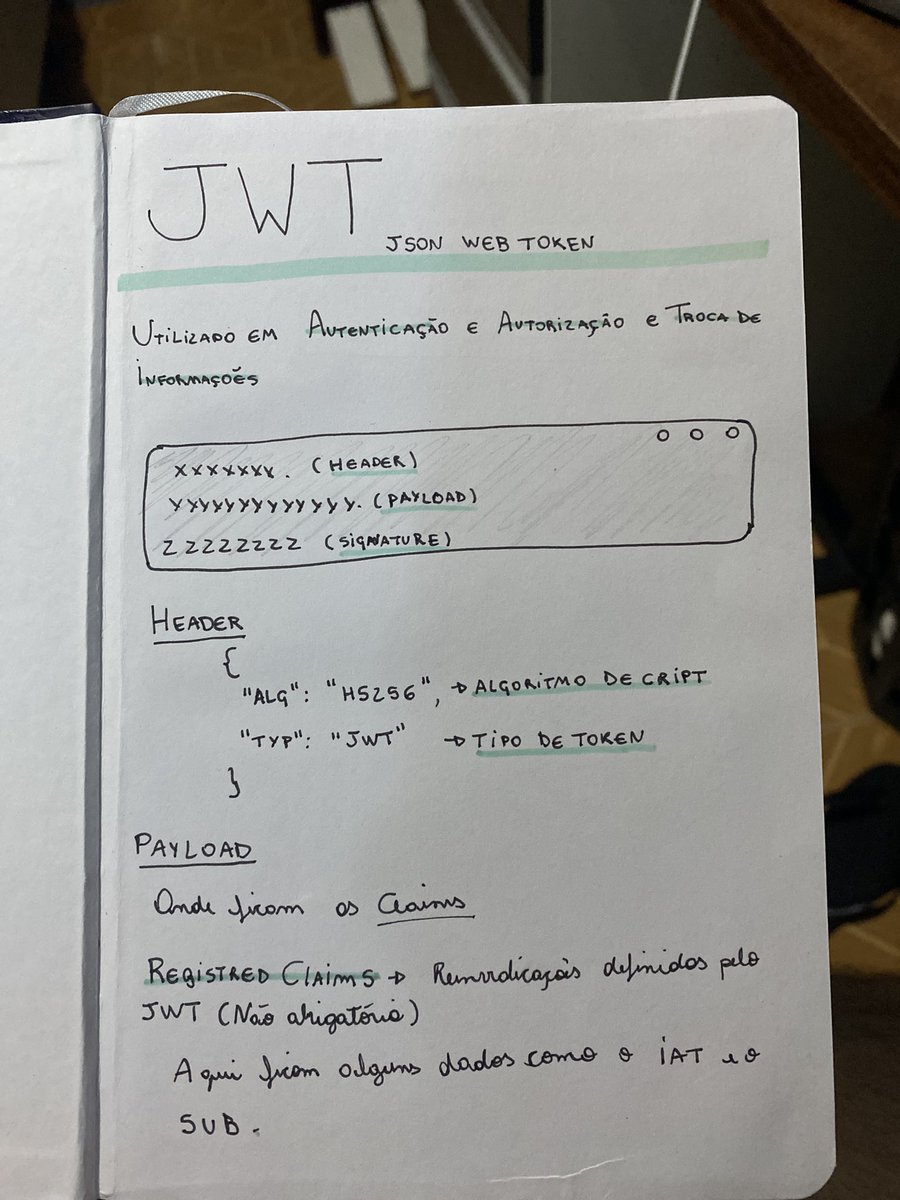 JWT
JSON WEB TOKEN
UTILIZADO EM AUTENTICAÇÃO E AUTORIZAÇÃO E TROCA DE
INFORMAÇÕES
XXXXXXX. (HEADER)
YYYYYYYYYYYYY. (PAYLOAD)
ZZZZZZZZ (SIGNATURE)
HEADER
{
"ALG": "HS256", → ALGORITMO DE CRIPT
"TYP": "JWT" → TIPO DE TOKEN
}
PAYLOAD
Onde ficam os Claims
REGISTRED CLAIMS → definidos pelo
JWT (Não obrigatório)
Aqui ficam alguns dados como o IAT e o
SUB.